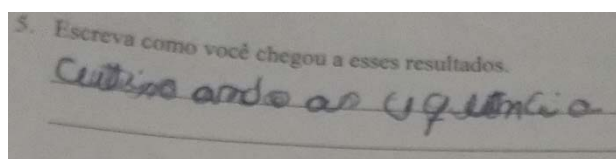 5. Escreva como você chegou a esses resultados.
Cutino ando as uquência